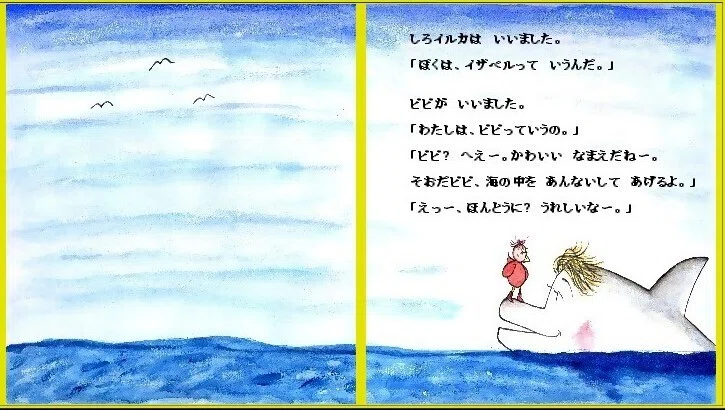 しろイルカは いいました。
「ぼくは、イザベルって いうんだ。」
ビビが いいました。
「わたしは、ビビっていうの。」
「ビビ? へえー。かわいい なまえだねー。
そおだビビ、海の中を あんないして あげるよ。」
「えっー、ほんとうに? うれしいなー。」